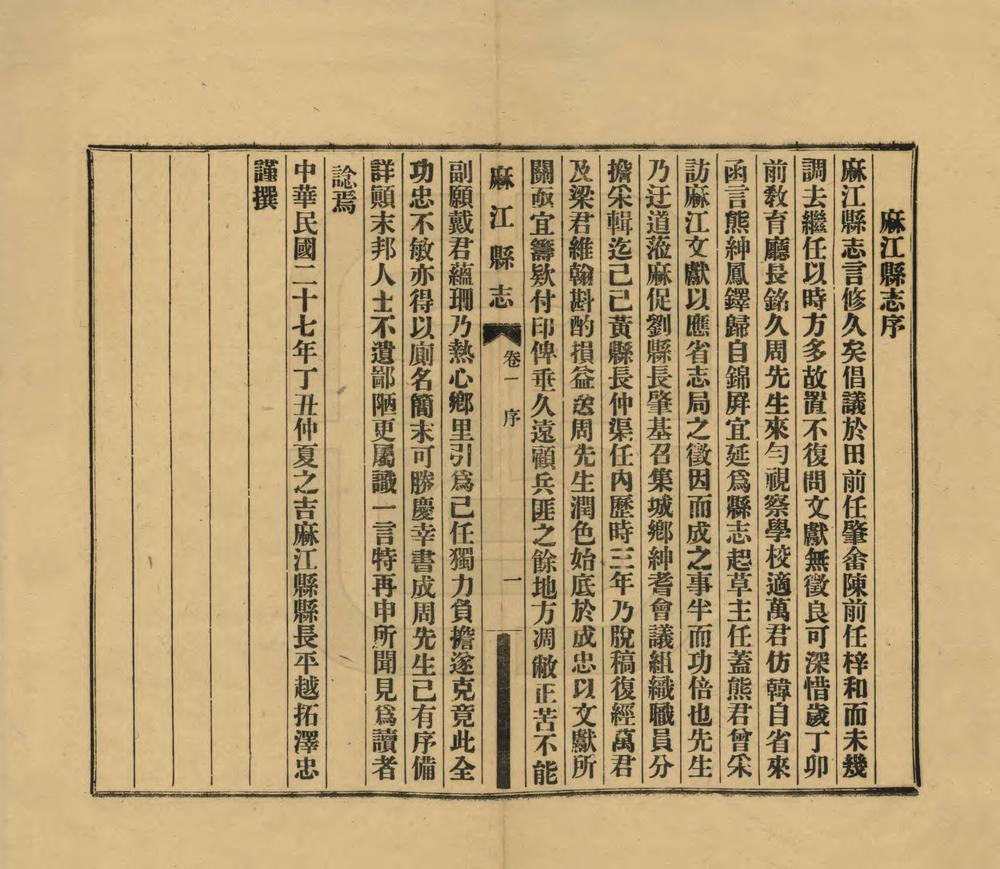 麻江縣志序
麻江縣志言修久矣倡議於田前任肇畬陳前任梓和而未幾
調去繼任以時方多故置不復問文獻無徵良可深惜歲丁卯
前敎育廳長銘久周先生來勻視察學校適萬君仿韓自省來
函言熊紳鳳鐸歸自錦屛宜延爲縣志起草主任蓋熊君曾采
訪麻江文獻以應省志局之徵因而成之事半而功倍也先生
乃迂道蒞麻促劉縣長肇基召集城鄕紳耆會議組織職員分
擔采輯迄己巳黃縣長仲渠任內歷時三年乃脫稿復經萬君
及梁君維翰斟酌損益周先生潤色始底於成忠以文獻所
關亟宜籌欵付印俾垂久遠顧兵匪之餘地方凋敝正苦不能
麻江縣志 卷一 序 一
副願戴君蘊珊乃熱心鄕里引爲己任獨力負擔遂克竟此全
功忠不敏亦得以廁名簡末可勝慶幸書成周先生已有序備
詳顚末邦人士不遺鄙陋更屬識一言特再申所聞見爲讀者
諗焉
中華民國二十七年丁丑仲夏之吉麻江縣縣長平越拓澤忠
謹撰